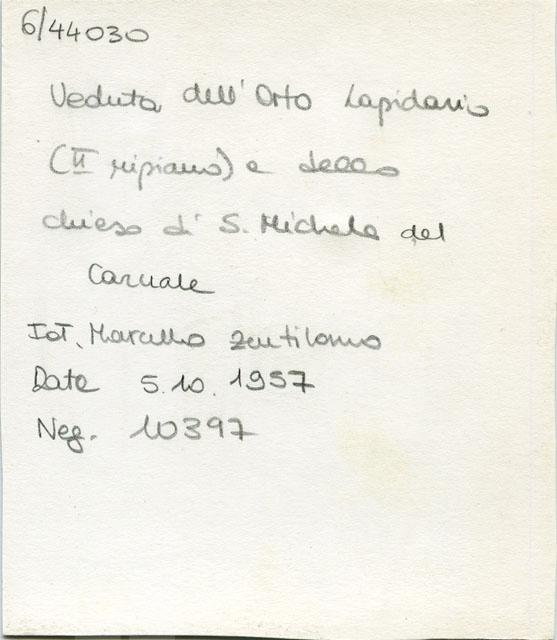 6/44030
Veduta dell'Orto Lapidario
(II ripiano) e della
chiesa di S. Michele del
Carnale
Fot. Marcello Zentilomo
Data 5.10.1957
Neg. 10397